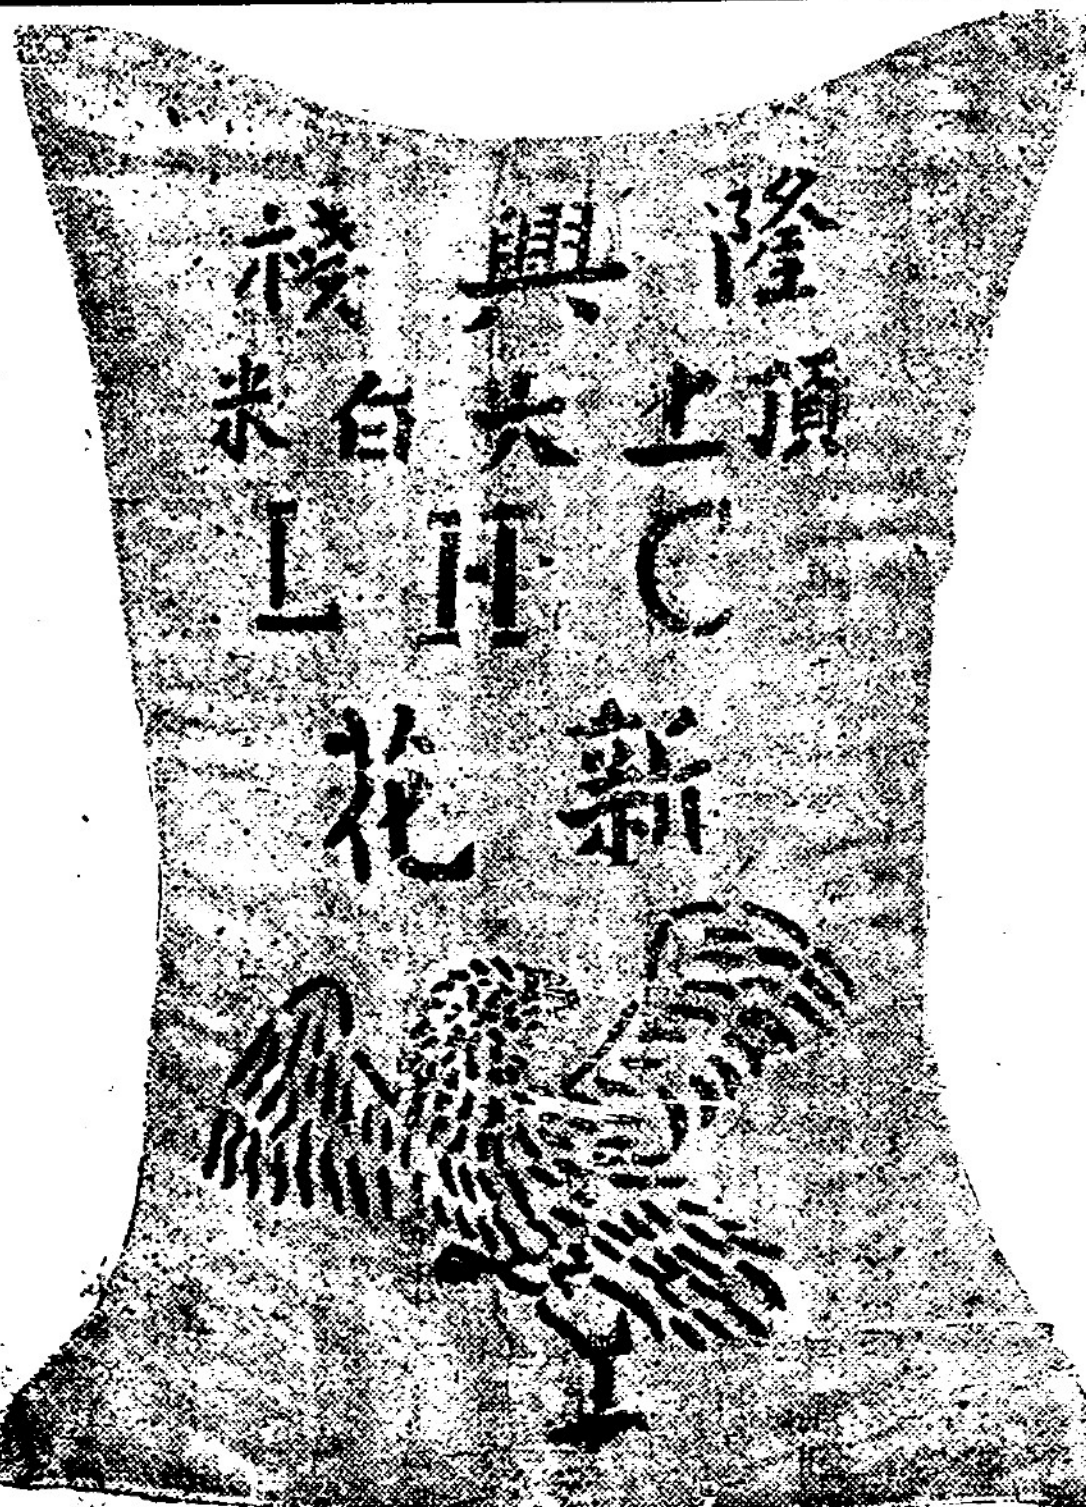 隆興棧
頂上大白米
L H C
新花